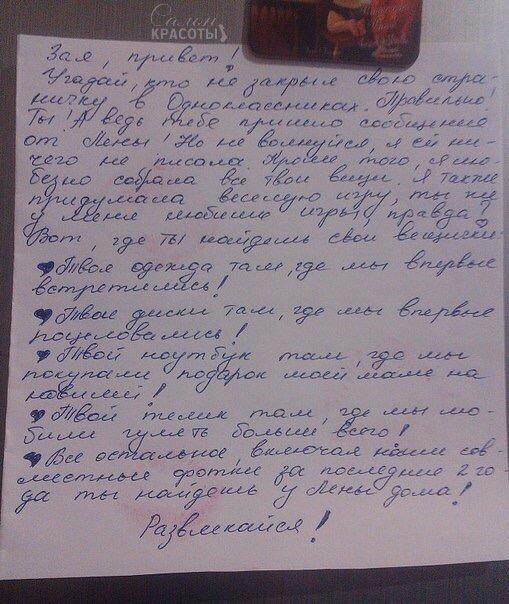 Салон
КРАСОТЫ
Зая, привет!
Угадай, кто не закрыл свою стра-
ничку в Одноклассниках. Правильно!
Ты! А ведь тебе пришло сообщение
от Лены! Но не волнуйся, я ей ни-
чего не писала. Кроме того, я лю-
безно собрала все твои вещи. Я также
придумала веселую игру, ты же
у меня любишь игры, правда?
Вот, где ты найдешь свои вещички:
♥ Твоя одежда там, где мы впервые
встретились!
♥ Твои диски там, где мы впервые
поцеловались!
♥ Твой ноутбук там, где мы
покупали подарок моей маме на
юбилей!
♥ Твой телик там, где мы лю-
били гулять больше всего!
♥ Все остальное, включая наши сов-
местные фотки за последние 2 го-
да ты найдешь у Лены дома!
Развлекайся!